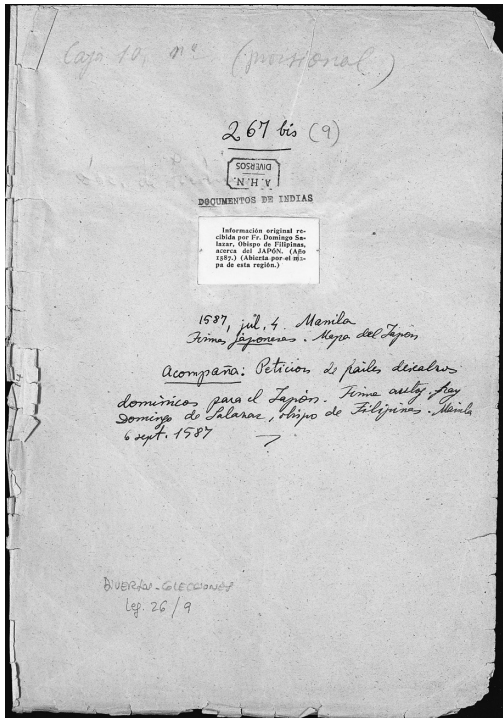 Caja 10, nº (provisional)
267 bis (9)
A.H.N.
DIVERSOS
DOCUMENTOS DE INDIAS
Información original re-
cibida por Fr. Domingo Sa-
lazar, Obispo de Filipinas,
acerca del JAPÓN. (Año
1587.) (Abierta por el ma-
pa de esta región.)
1587, jul. 4. Manila
Firmas japonesas. Mapa del Japón
Acompaña: Petición de frailes descalzos
dominicos para el Japón. Firma autóg. fray
Domingo de Salazar, obispo de Filipinas. Manila
6 sept. 1587
DIVERSOS-COLECCIONES
Leg. 26/9